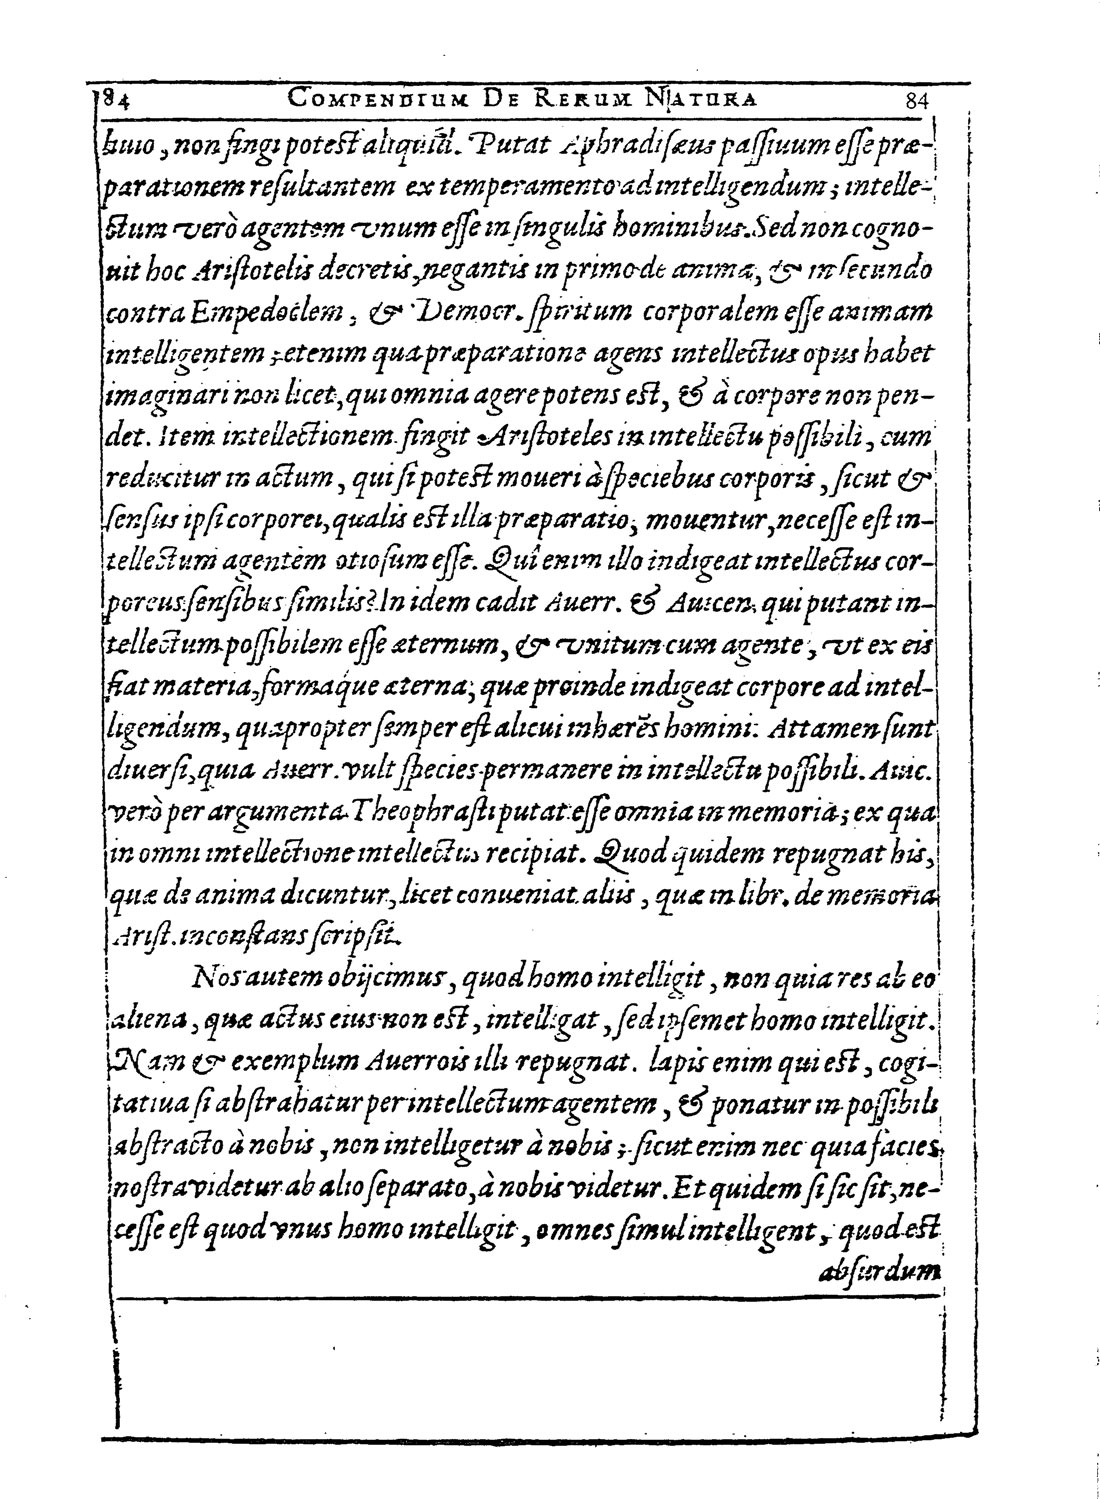 84 COMPENDIUM DE RERUM NATURA 84
huio, non fingi potest aliquid. Putat Aphradisæus passiuum esse præ-
parationem resultantem ex temperamento ad intelligendum; intelle-
ctum verò agentem vnum esse in singulis hominibus. Sed non cogno-
uit hoc Aristotelis decretis, negantis in primo de anima, & in secundo
contra Empedoclem, & Democr. spiritum corporalem esse animam
intelligentem; etenim qua præparatione agens intellectus opus habet
imaginari non licet, qui omnia agere potens est, & à corpore non pen-
det. Item intellectionem fingit Aristoteles in intellectu possibili, cum
reducitur in actum, qui si potest moueri à speciebus corporis, sicut &
sensus ipsi corporei, qualis est illa præparatio, mouentur, necesse est in-
tellectum agentem otiosum esse. Quî enim illo indigeat intellectus cor-
poreus sensibus similis? In idem cadit Auerr. & Auicen. qui putant in-
tellectum possibilem esse æternum, & vnitum cum agente, vt ex eis
fiat materia, formaq́ue æterna, quæ proinde indigeat corpore ad intel-
ligendum, quapropter semper est alicui inhærẽs homini. Attamen sunt
diuersi, quia Auerr. vult species permanere in intellectu possibili. Auic.
verò per argumenta Theophrasti putat esse omnia in memoria; ex qua
in omni intellectione intellectus recipiat. Quod quidem repugnat his,
quæ de anima dicuntur, licet conueniat aliis, quæ in libr. de memoria
Arist. inconstans scripsit.
Nos autem obijcimus, quod homo intelligit, non quia res ab eo
aliena, quæ actus eius non est, intelligat, sed ipsemet homo intelligit.
Nam & exemplum Auerrois illi repugnat. lapis enim qui est, cogi-
tatiua si abstrahatur per intellectum agentem, & ponatur in possibili
abstracto à nobis, non intelligetur à nobis; sicut enim nec quia facies
nostra videtur ab alio separato, à nobis videtur. Et quidem si sic sit, ne-
cesse est quod vnus homo intelligit, omnes simul intelligent, quod est
absurdum